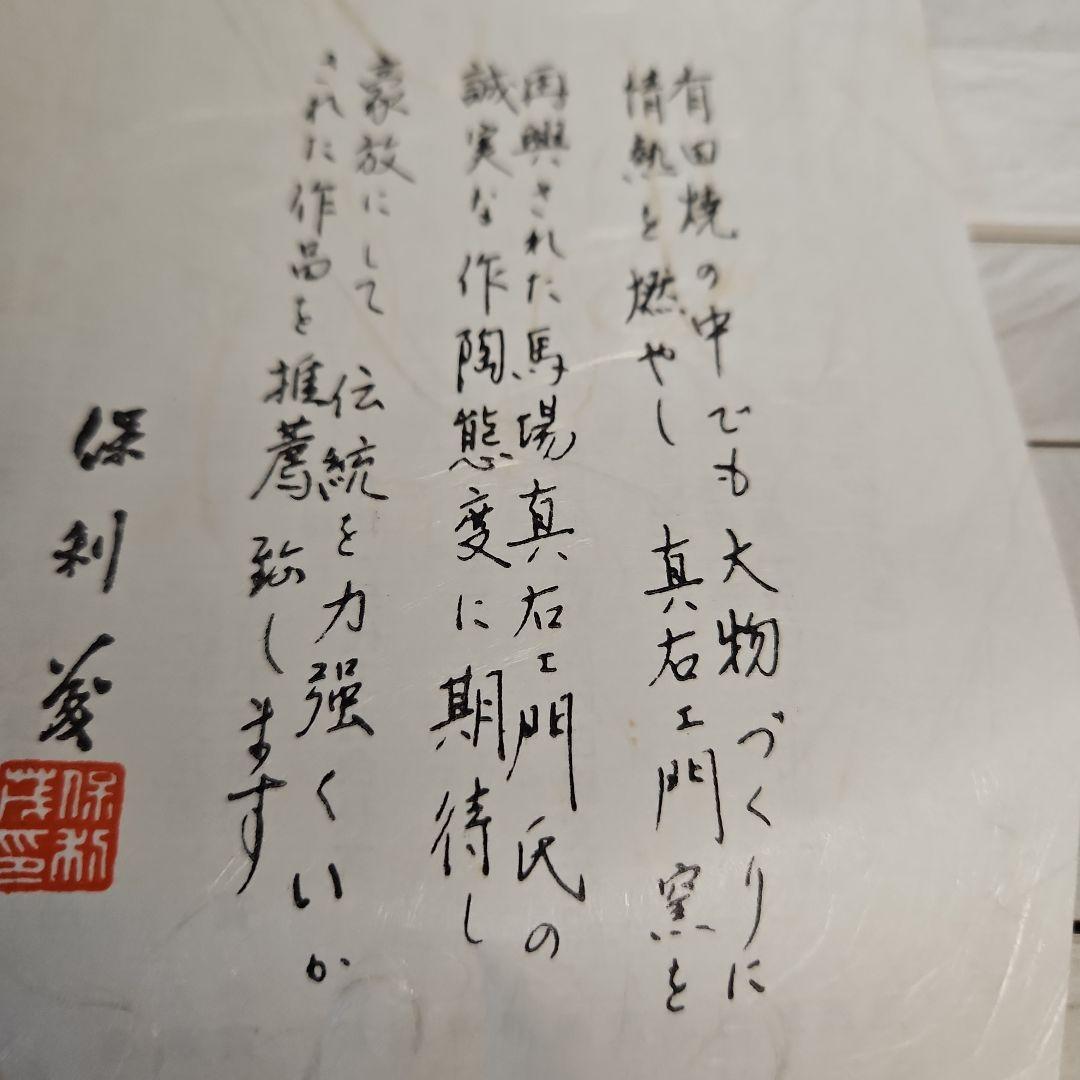 有田焼の中でも大物づくりに
情熱を燃やし 真右エ門窯を
再興された馬場真右エ門氏の
誠実な作陶態度に期待し
豪放にして 伝統を力強くいか
された作品を推薦致します
保利茂
保利
茂印